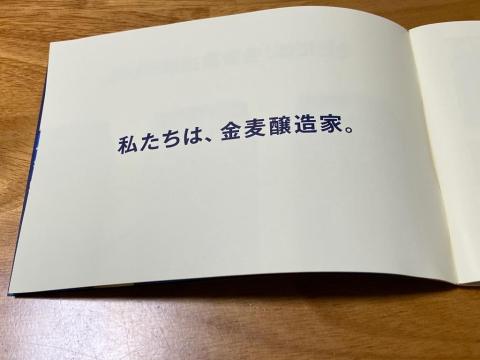 私たちは、金麦醸造家。